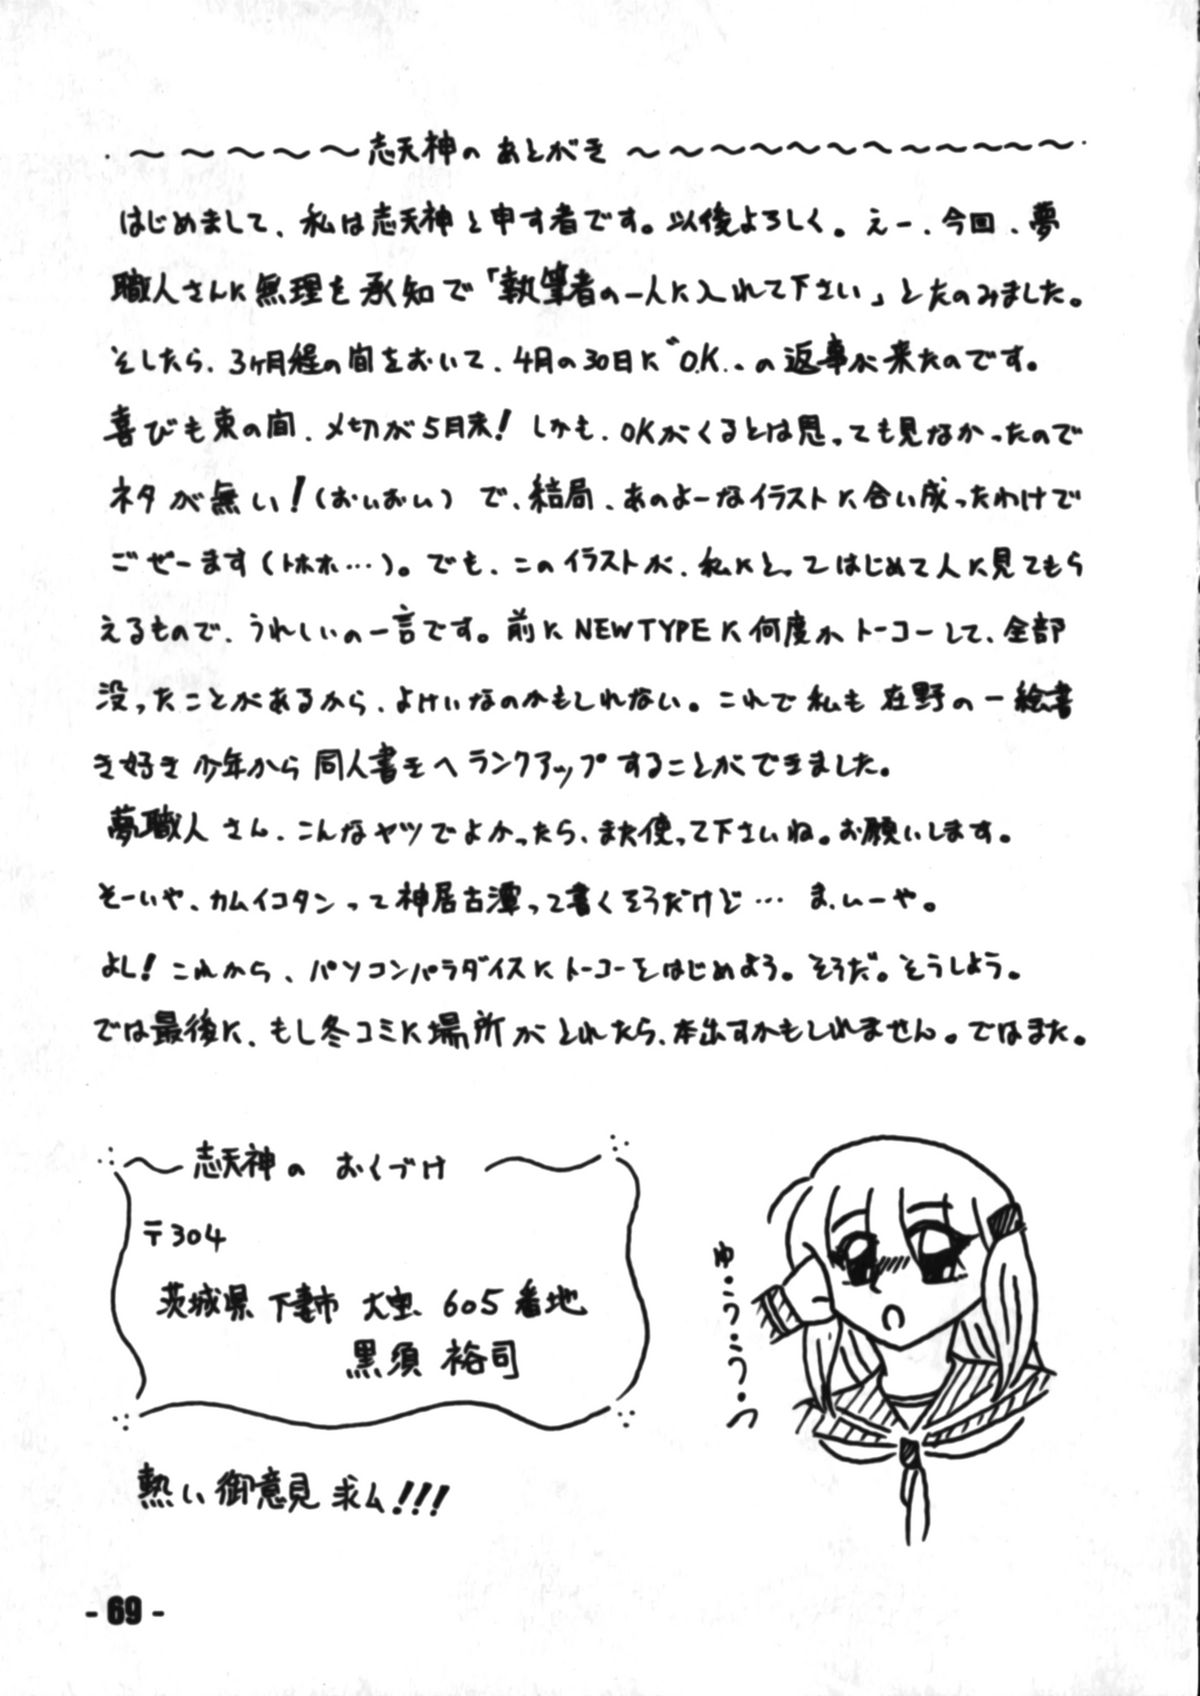 志天神の あとがき
はじめまして、私は志天神と申す者です。以後よろしく。えー、今回、夢
職人さんに無理を承知で「執筆者の一人に入れて下さい」とたのみました。
そしたら、3ヶ月程の間をおいて、4月の30日に〝O.K.〟の返事が来たのです。
喜びも束の間、〆切が5月末!しかも、OKがくるとは思っても見なかったので
ネタが無い!(おいおい)で、結局、あのよーなイラストに合い成ったわけで
ごぜーます(トホホ…)。でも、このイラストが、私にとってはじめて人に見てもら
えるもので、うれしいの一言です。前にNEWTYPEに何度かトーコーして、全部
没ったことがあるから、よけいなのかもしれない。これで私も在野の一絵書
き好き少年から同人書きへランクアップすることができました。
夢職人さん、こんなヤツでよかったら、また使って下さいね。お願いします。
そーいや、カムイコタンって神居古潭って書くそうだけど… ま、いーや。
よし!これから、パソコンパラダイスにトーコーをはじめよう。そうだ。そうしよう。
では最後に、もし冬コミに場所がとれたら、本出すかもしれません。ではまた。
志天神の おくづけ
〒304
茨城県 下妻市 大宝 605番地
黒須 裕司
ゆ・う・う・つ
熱い御意見求ム!!!
- 69 -